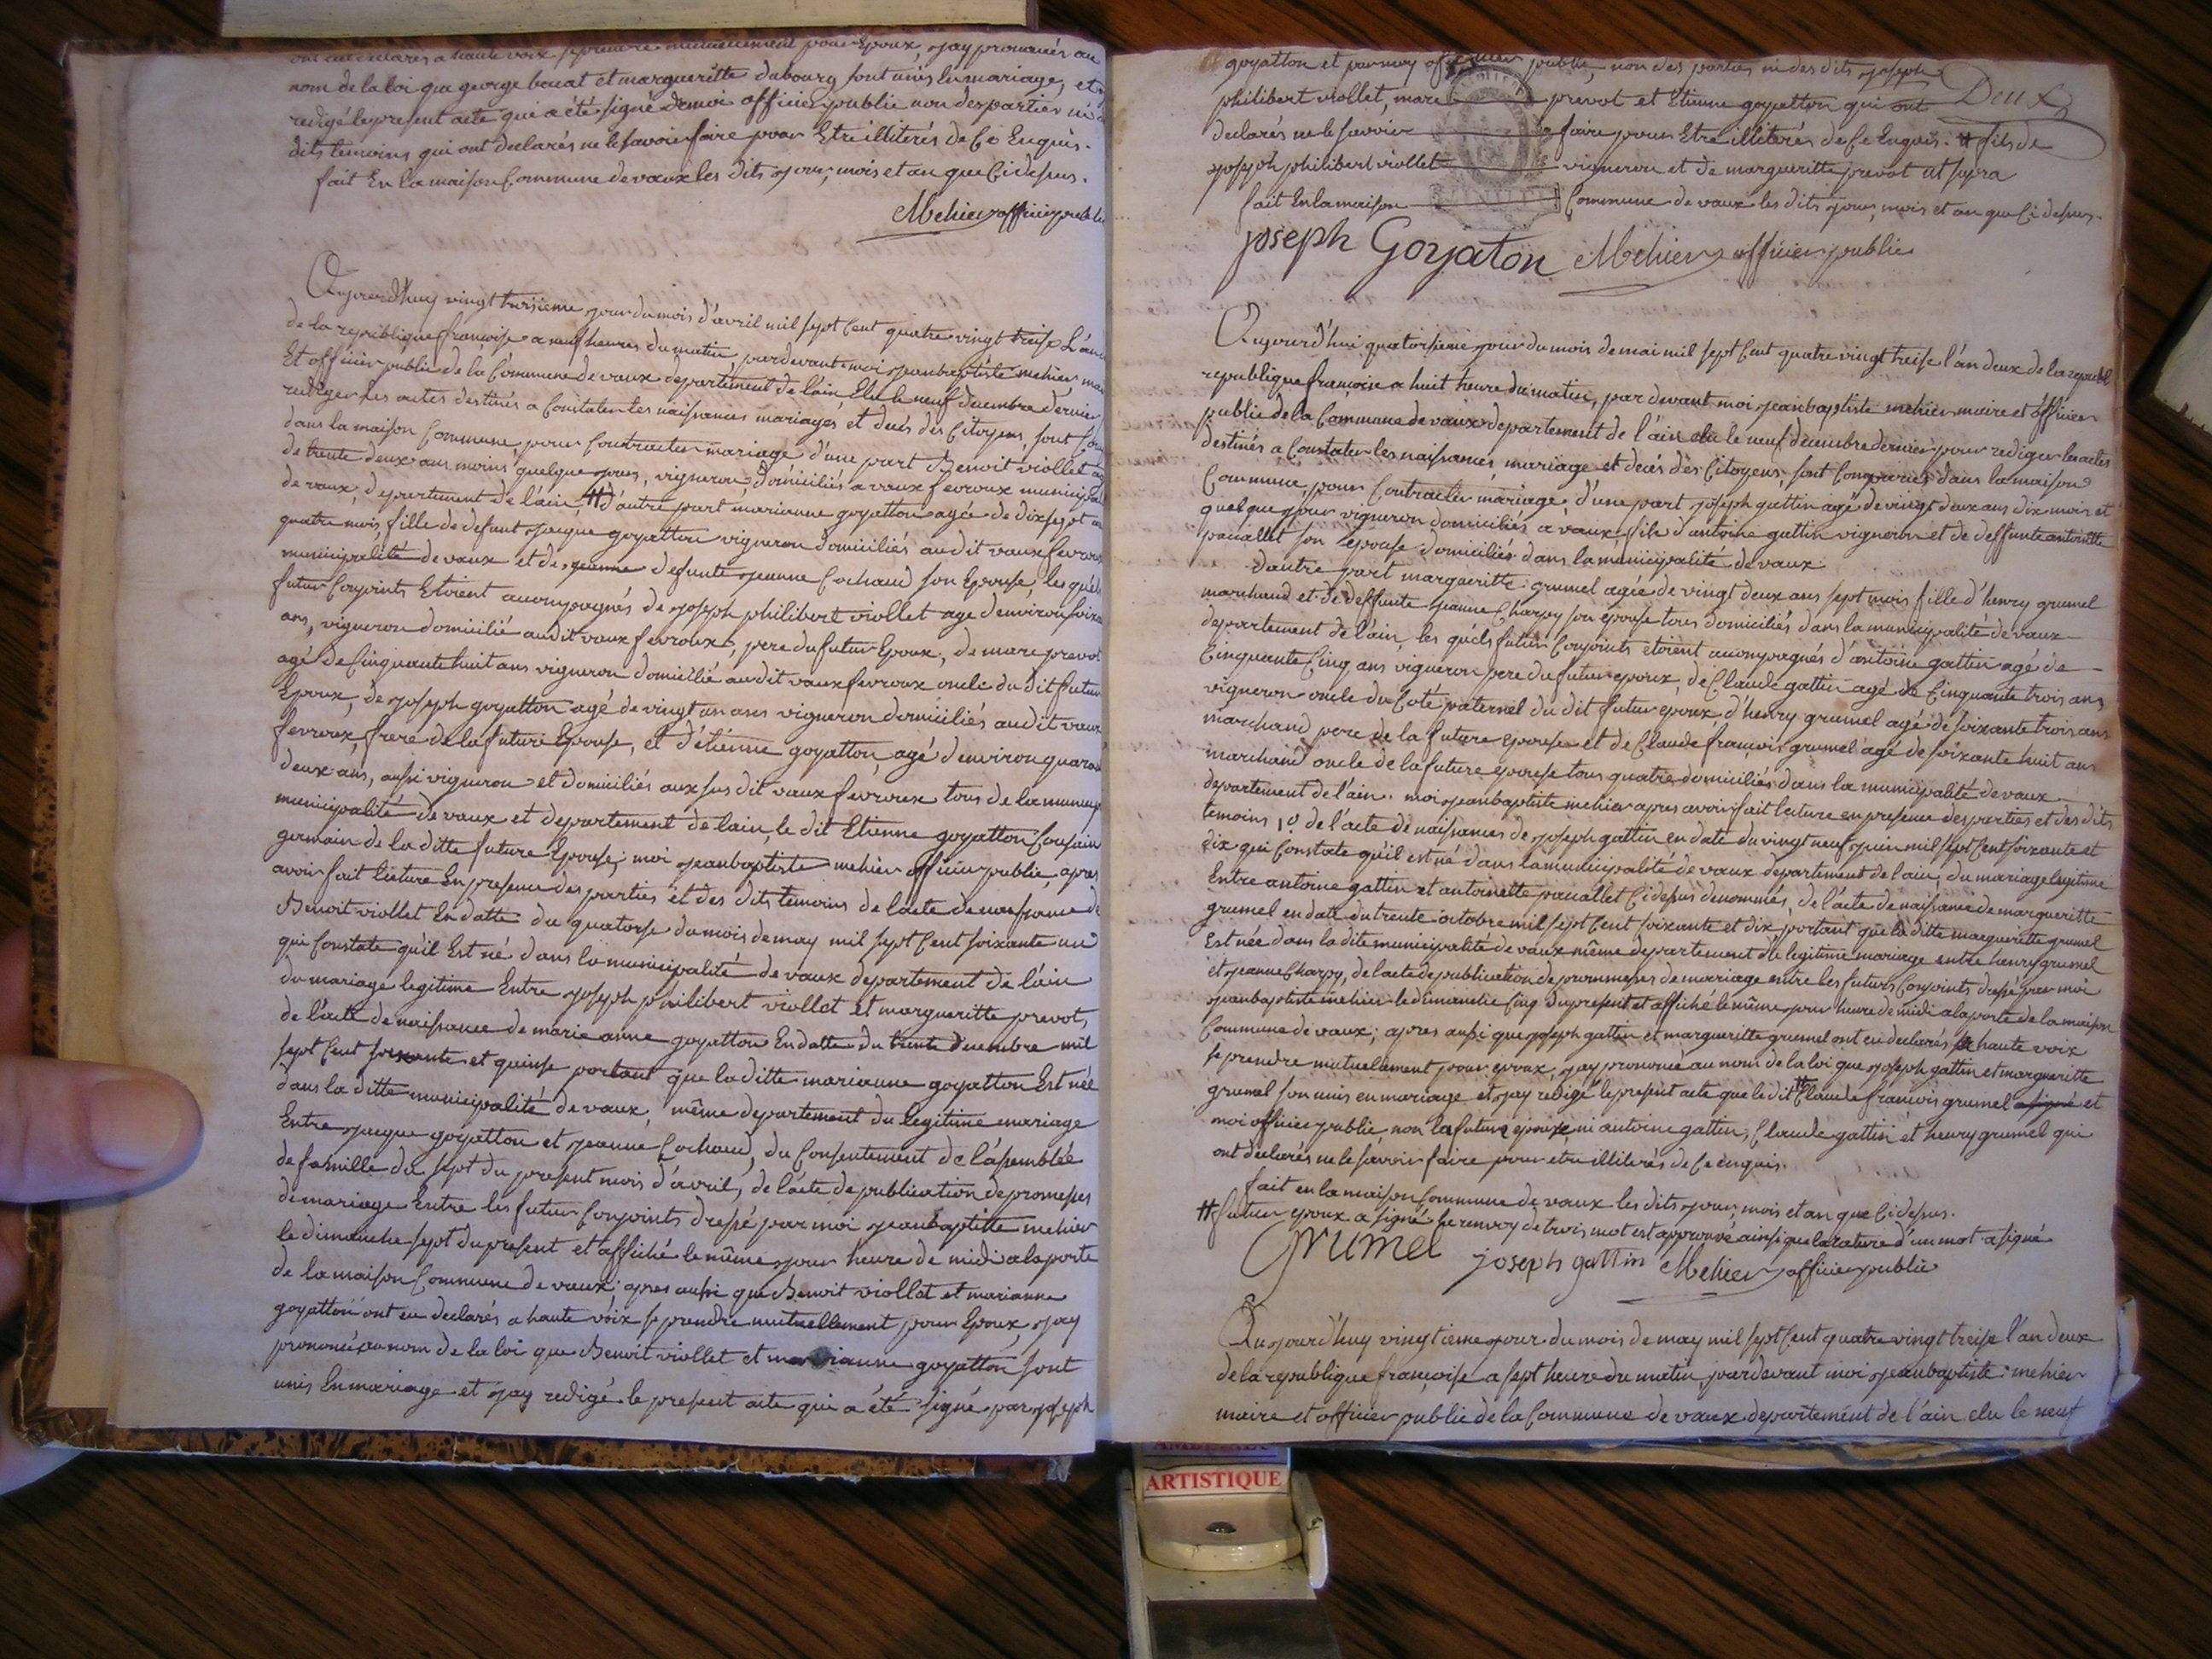 ont eu declarés a haute voix se prendre mutuellement pour Epoux, j'ay prononcés au
nom de la loi que george bouat et margueritte dubourg sont unis En mariage, et
redigé le present acte qui a été signé de moi officier public non des parties ni
dits temoins qui ont declarés ne le savoir faire pour Etre illiterés de Ce Enquis.
fait En la maison Commune de vaux les dits jour, mois et an que Ci dessus.
Mehier officier public
Aujourd'huy vingt troisieme jour du mois d'avril mil sept Cent quatre vingt treise L'an
de la republique françoise a neuf heures du matin pardevant moi jeanbaptiste mehier
Et officier public de la Commune de vaux departement de l'ain Elu le neuf decembre dernier
rediger les actes destinés a Constater les naissances mariages et decés des Citoyens, sont
dans la maison Commune pour Contracter mariage d'une part Benoit viollet
de trente deux ans moins quelque jours, vigneron, domiciliés a vaux fevroux
de vaux, departement de l'ain, # d'autre part marianne goyatton agée de dixsept
quatre mois, fille de defunt jacque goyatton vigneron domiciliés audit vaux fevroux
municipalité de vaux et de jeanne defunte jeanne Cochaud son Epouse, les quels
futur Conjoints Etoient acompagnés de joseph philibert viollet agé d'environ
ans, vigneron domicilié audit vaux fevroux, pere du futur Epoux, de marc prevot
agé de Cinquante huit ans vigneron domicilié audit vaux fevroux oncle du dit futur
Epoux, de joseph goyatton agé de vingt un ans vigneron domiciliés audit vaux
fevroux, frere de la future Epouse, et d'étienne goyatton, agé d'environ
deux ans, aussi vigneron et domiciliés aux sus dit vaux fevroux tous de la
municipalité de vaux et departement de l'ain, le dit Etienne goyatton Cousin
germain de la ditte future Epouse; moi jeanbaptiste mehier officier public, apres
avoir fait lecture En presence des parties et des dits temoins de l'acte de naissance de
Benoit viollet En datte du quatorse du mois de may mil sept Cent soixante un
qui Constate qu'il Est né dans la municipalité de vaux departement de l'ain
du mariage legitime Entre joseph philibert viollet et margueritte prevot,
de l'acte de naissance de marie anne goyatton En datte du trente decembre mil
sept Cent soixante et quinse portant que la ditte marianne goyatton Est née
dans la ditte municipalité de vaux même departement du legitime mariage
Entre jacque goyatton et jeanne Cochaud, du Consentement de l'assemblée
de famille du sept du present mois d'avril, de l'acte de publication de promesses
de mariage Entre les futur Conjoints dressé par moi jeanbaptiste mehier
le dimanche sept du present et affiché le même jour heure de midi a la porte
de la maison Commune de vaux; apres aussi que Benoit viollet et marianne
goyatton ont eu declarés a haute voix se prendre mutuellement pour Epoux, j'ay
prononcé au nom de la loi que Benoit viollet et marianne goyatton sont
unis En mariage et j'ay redigé le present acte qui a été signé par joseph
goyatton et par moy officier public, non des parties ni des dits joseph
philibert viollet, marc prevot et Etienne goyatton qui ont Deux
declarés ne le savoir faire pour Etre illiterés de Ce Enquis. # fils de
joseph philibert viollet vigneron et de margueritte prevot ut supra
fait En la maison Commune de vaux les dits jour, mois et an que Ci dessus.
joseph Goyaton Mehier officier public
Aujourd'hui quatorsieme jour du mois de mai mil sept Cent quatre vingt treise l'an deux de la
republique françoise a huit heure du matin, par devant moi jeanbaptiste mehier maire et officier
public de la Commune de vaux departement de l'ain elu le neuf decembre dernier pour rediger les actes
destinés a Constater les naissances mariage et decés des Citoyens, sont Comparus dans la maison
Commune, pour Contracter mariage, d'une part joseph gattin agé de vingt deux ans dix mois et
quelque jour vigneron domiciliés a vaux, fils d'antoine gattin vigneron et de deffunte antoinette
pacallet son epouse domiciliés dans la municipalité de vaux
d'autre part margueritte grumel agée de vingt deux ans sept mois fille d'henry grumel
marchand et de deffunte jeanne Charpy son epouse tous domiciliés dans la municipalité de vaux
departement de l'ain, les quéls futur Conjoints etoient acompagnés d'antoine gattin agé de
Cinquante Cinq ans vigneron pere du futur epoux, de Claude gattin agé de Cinquante trois ans
vigneron oncle du Coté paternel du dit futur epoux, d'henry grumel agé de soixante trois ans
marchand pere de la future epouse et de Claude françois grumel agé de soixante huit ans
marchand oncle de la future epouse tous quatre domiciliés dans la municipalité de vaux
departement de l'ain. moi jeanbaptiste mehier apres avoir fait lecture en presence des parties et des dits
temoins 1º de l'acte de naissances de joseph gattin en date du vingt neuf juin mil sept Cent soixante et
dix qui Constate qu'il est né dans la municipalité de vaux departement de l'ain, du mariage legitime
Entre antoine gattin et antoinette pacallet Ci dessus denommés, de l'acte de naissance de margueritte
grumel en date du trente octobre mil sept Cent soixante et dix, portant que la ditte margueritte grumel
Est née dans la dite municipalité de vaux même departement de legitime mariage entre henry grumel
et jeanne Charpy, de l'acte de publication de prommesses de marriage entre les futurs Conjoints dressé par moi
jeanbaptiste mehier le dimanche Cinq du present et affiché le même jour heure de midi a la porte de la maison
Commune de vaux; apres aussi que joseph gattin et margueritte grumel ont eu declarés a haute voix
se prendre mutuellement pour epoux, j'ay prononcé au nom de la loi que joseph gattin et margueritte
grumel son unis en mariage et j'ay redigé le present acte que le dit # Claude françois grumel a signé et
moi officier public non la future epouse, ni antoine gattin, Claude gattin et henry grumel qui
ont declarés ne le savoir faire pour etre illiterés de Ce enquis.
fait en la maison Commune de vaux les dits jour, mois et an que Ci dessus.
# futur epoux a signé le renvoy de trois mot est approuvé ainsi que la rature d'un mot a signé
Grumel joseph gattin Mehier officier public
Aujourd'huy vingtieme jour du mois de may mil sept Cent quatre vingt treise l'an deux
de la republique françoise a sept heure du matin pardevant moi jeanbaptiste mehier
maire et officier public de la Commune de vaux departement de l'ain elu le neuf
ARTISTIQUE